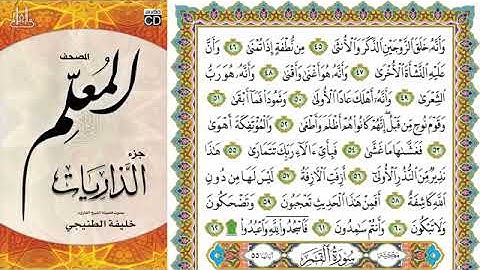 CD
المصحف
المُعلِّم
جزء
الذاريات
خليفة الطنيجي
وَأَنَّهُۥ خَلَقَ ٱلزَّوْجَيْنِ ٱلذَّكَرَ وَٱلْأُنثَىٰ ٤٥ مِن نُّطْفَةٍ إِذَا تُمْنَىٰ ٤٦ وَأَنَّ
عَلَيْهِ ٱلنَّشْأَةَ ٱلْأُخْرَىٰ ٤٧ وَأَنَّهُۥ هُوَ أَغْنَىٰ وَأَقْنَىٰ ٤٨ وَأَنَّهُۥ هُوَ رَبُّ
ٱلشِّعْرَىٰ ٤٩ وَأَنَّهُۥٓ أَهْلَكَ عَادًا ٱلْأُولَىٰ ٥٠ وَثَمُودَا۟ فَمَآ أَبْقَىٰ ٥١
وَقَوْمَ نُوحٍ مِّن قَبْلُ إِنَّهُمْ كَانُوا۟ هُمْ أَظْلَمَ وَأَطْغَىٰ ٥٢ وَٱلْمُؤْتَفِكَةَ أَهْوَىٰ
٥٣ فَغَشَّىٰهَا مَا غَشَّىٰ ٥٤ فَبِأَىِّ ءَالَآءِ رَبِّكَ تَتَمَارَىٰ ٥٥ هَـٰذَا
نَذِيرٌ مِّنَ ٱلنُّذُرِ ٱلْأُولَىٰٓ ٥٦ أَزِفَتِ ٱلْـَٔازِفَةُ ٥٧ لَيْسَ لَهَا مِن دُونِ
ٱللَّهِ كَاشِفَةٌ ٥٨ أَفَمِنْ هَـٰذَا ٱلْحَدِيثِ تَعْجَبُونَ ٥٩ وَتَضْحَكُونَ
وَلَا تَبْكُونَ ٦٠ وَأَنتُمْ سَـٰمِدُونَ ٦١ فَٱسْجُدُوا۟ لِلَّهِ وَٱعْبُدُوا۟ ٦٢
مكية سورة القمر آياتها ٥٥